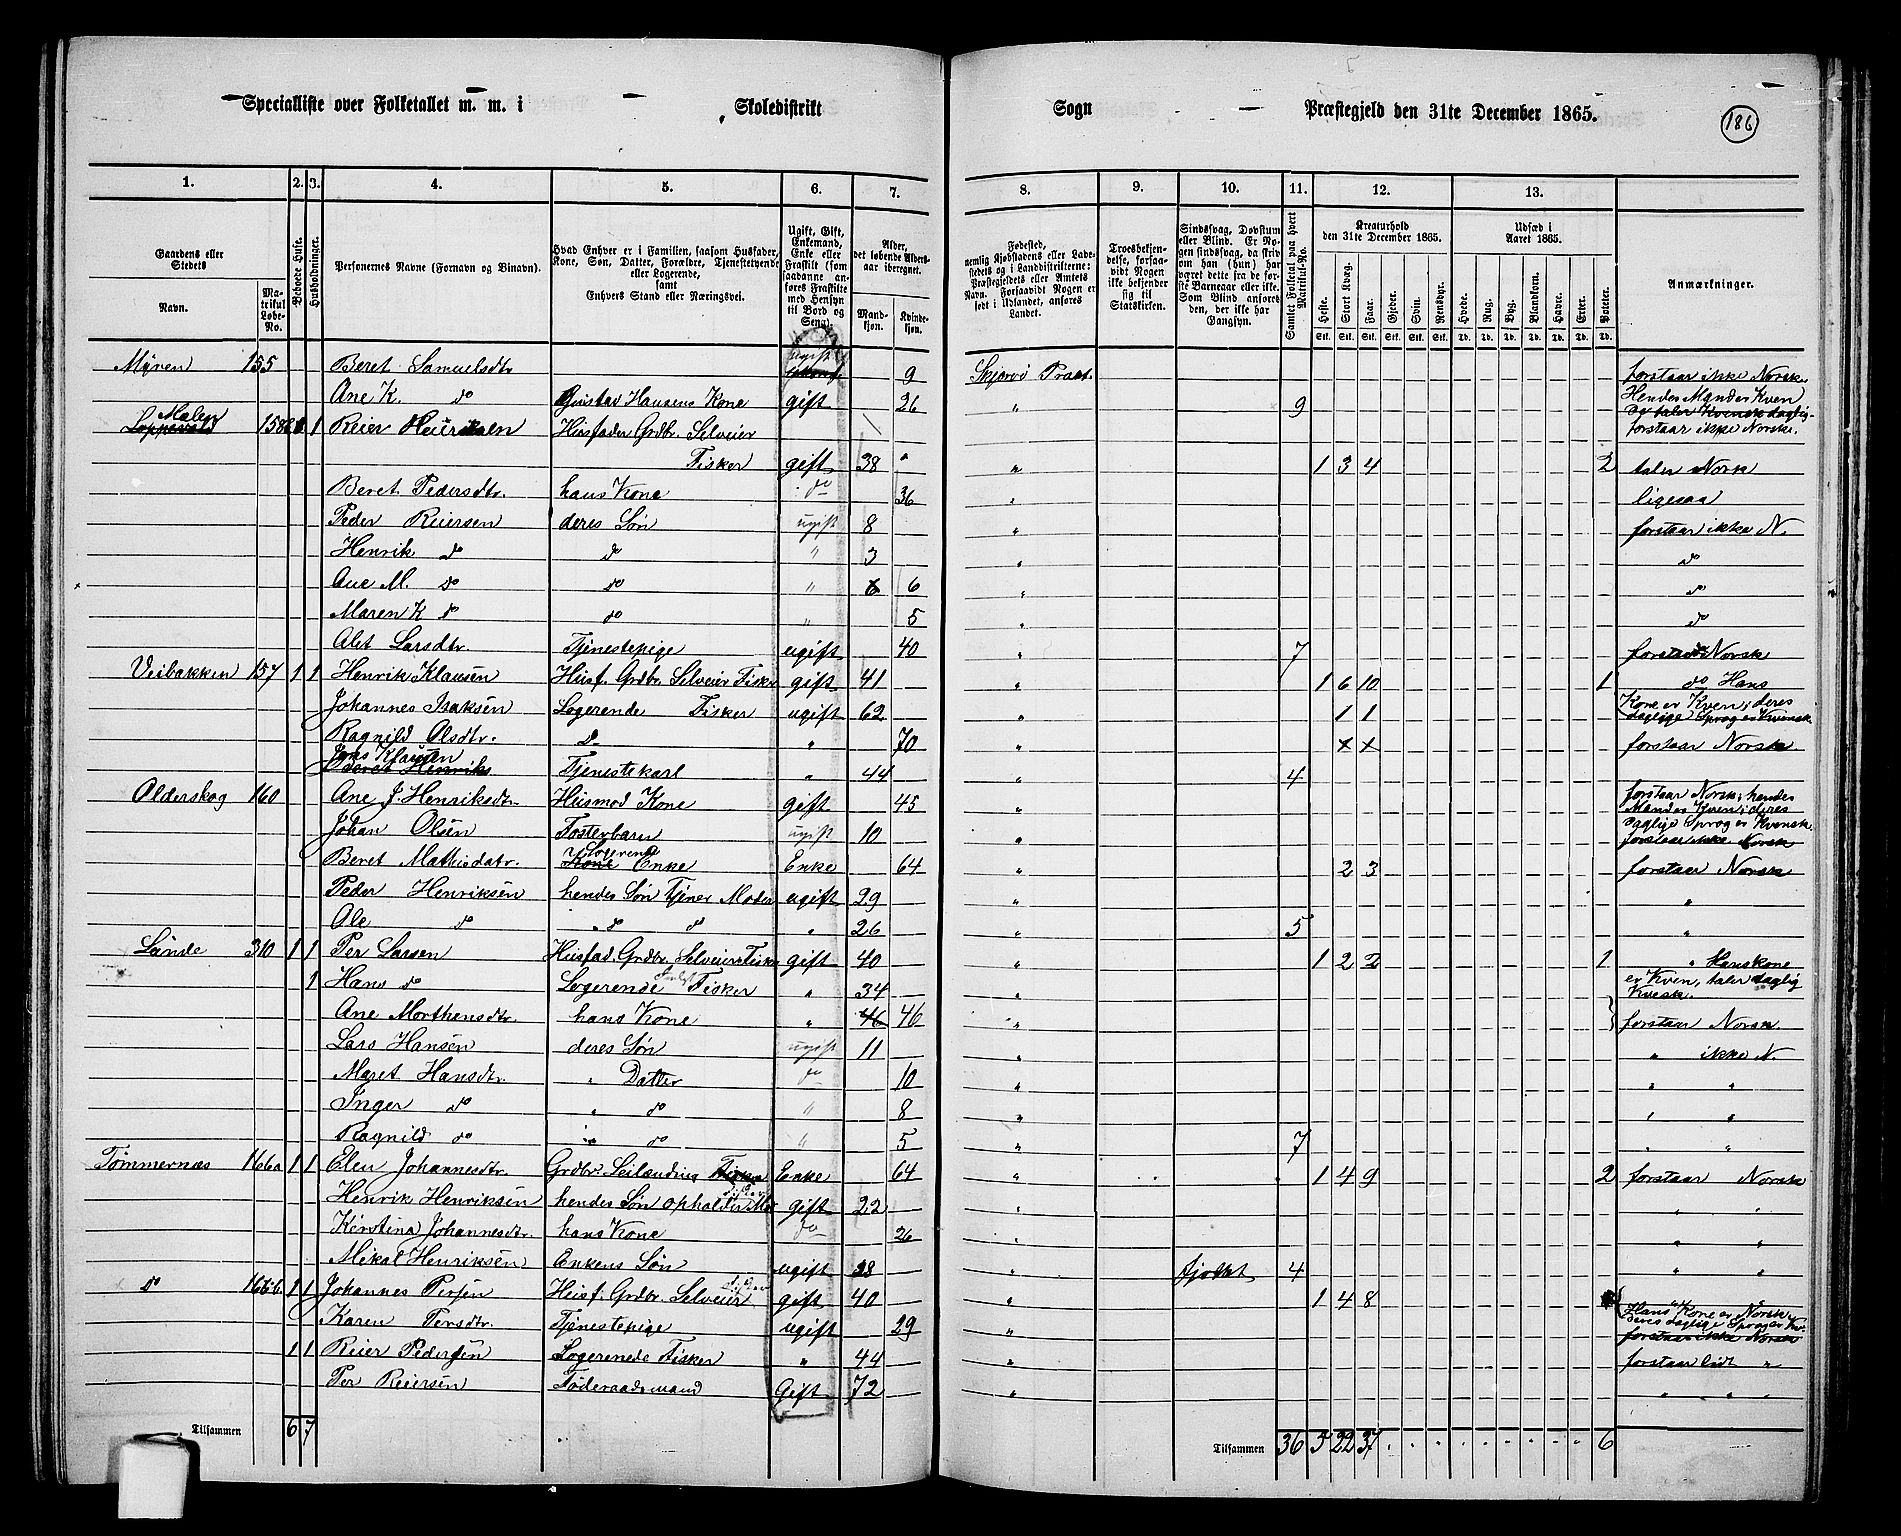 Specialliste over Folketallet m. m. i Skoledistrikt Sogn Præstegjeld den 31te December 1865. 186
1. 2. 3. 4. 5. 6. 7. 8. 9. 10. 11. 12. 13.
Gaardens eller Stedets
Navn.
Matrikul Løbe-No.
Beboede Huse.
Husholdninger.
Personernes Navne (Fornavn og Binavn).
Hvad Enhver er i Familien, saasom Husfader, Kone, Søn, Datter, Forældre, Tjenestetyende eller Logerende,
samt
Enhvers Stand eller Næringsvei.
Ugift, Gift, Enkemand, Enke eller Fraskilt (som saadanne anføres Fraskilte med Hensyn til Bord og Seng).
Alder, det løbende Aldersaar iberegnet.
Mandkjøn. Kvindekjøn.
Fødested, nemlig Kjøbstadens eller Ladestedets og i Landdistrikterne: Præstegjeldets eller Amtets Navn. Forsaavidt Nogen er født i Udlandet, anføres Landet.
Troesbekjendelse, forsaavidt Nogen ikke bekjender sig til Statskirken.
Sindssvag, Døvstum eller Blind. Er Nogen sindssvag, da skriv om han (hun) har været dette fra de første Barneaar eller ikke. Som Blind anføres den, der ikke har Gangsyn.
Samlet Folketal paa hvert Matrikul-No.
Kreaturhold den 31te December 1865.
Heste. Stort Kvæg. Faar. Gjeder. Svin. Rensdyr.
Udsæd i Aaret 1865.
Hvede. Rug. Byg. Blandkorn. Havre. Erter. Poteter.
Stk. Stk. Stk. Stk. Stk. Stk. Td. Td. Td. Td. Td. Td. Td.
Anmærkninger.
Myren 155 Beret Samuelsdtr ugift 9 Skjervø Præst. forstaar ikke Norsk.
Ane K. do Gustav Hansens Kone gift 26 " 9 Hendes Mand er Kven
Malen Loppevold 158 1 Reier Henriksen Husfader Grdbr. Selveier og taler Kvensk daglig- forstaar ikke Norsk.
Fisker gift 38 " 1 3 4 2 taler Norsk
Beret Pedersdtr. hans Kone do 36 " ligesaa
Peder Reiersen deres Søn ugift 8 " forstaar ikke N.
Henrik do do " 3 " do
Ane M. do do " 6 6 " do
Maren K do do " 5 " do
Alet Larsdtr. Tjenestepige ugift 40 " 7 forstaar Norsk
Veibakken 157 1 1 Henrik Klausen Husf. Grdbr. Selveier Fisker gift 41 " 1 6 10 1 do Hans
Johannes Isaksen Logerende Fisker ugift 62 " 1 1 Kone er Kven; deres daglige Sprog er Kvensk
Ragnild Olsdtr. do " 70 " x x forstaar Norsk
Jens Klausen Beret Henriks Tjenestekarl " 44 " 4
Olderskog 160 Ane J. Henriksdtr. Husmod Kone gift 45 " forstaar Norsk; hendes Mand er Kven; deres
Johan Olsen Fosterbarn ugift 10 " daglige Sprog er Kvensk. forstaar ikke Norsk
Beret Mathisdatr. Logerende Kone Enke Enke 64 " 2 3 forstaar Norsk
Peder Henriksen hendes Søn Tjener Moder ugift 29 " "
Ole do " do do " 26 " 5 "
Lunde 310 1 1 Per Larsen Husfad. Grdbr. Selveier Fisker gift 40 " 1 2 2 1 " Hans kone
1 Hans do Logerende Fisker " 34 " er Kven, taler daglig Kvensk.
Ane Morthensdtr. hans Kone " 46 46 " forstaar Norsk.
Lars Hansen deres Søn ugift 11 " " ikke N
Maret Hansdtr. " Datter do 10 " " "
Inger do " do " 8 " " "
Ragnild do " do " 5 " 7 " "
Tømmernæs 166a 1 1 Elen Johannesdtr. Grdbr. Leilænding Fisker Enke 64 " 1 4 9 2 forstaar Norsk
Henrik Henriksen hendes Søn ophalder Mor gift 22 " " "
Kirstina Johannesdtr. hans Kone do 26 " " "
Mikal Henriksen Enkens Søn ugift 28 " fjollet 4 " "
do 166b 1 1 Johannes Persen Husf. Grdbr. Selveier gift 40 " 1 4 8 Hans Kone er Norsk,
Karen Persdtr. Tjenestepige ugift 29 " deres daglige Sprog er Kv. forstaar ikke Norsk
1 1 Reier Pedersen Logerende Fisker " 44 " forstaar lidt "
Per Reiersen Føderaadsmand Gift 72 " " " "
Tilsammen 6 7 Tilsammen 36 5 22 37 6